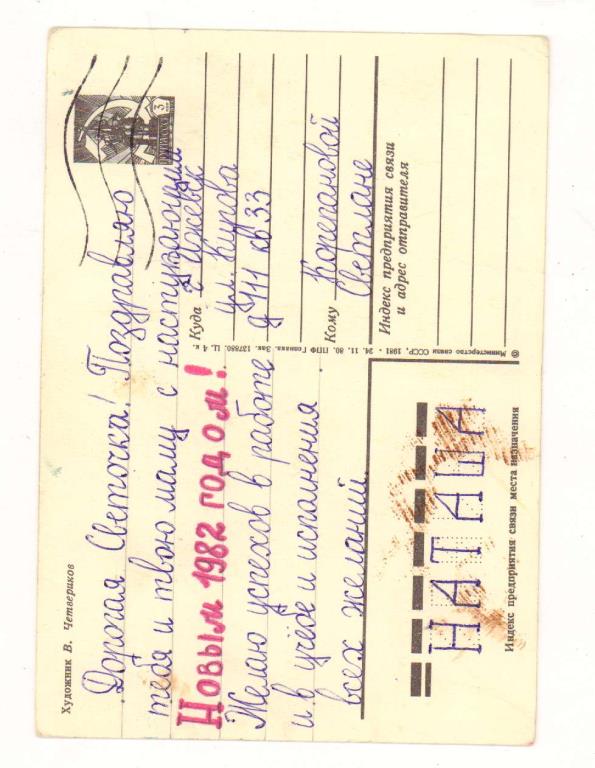 Художник В. Четвериков
Дорогая Светочка! Поздравляю
тебя и твою маму с наступающим
Новым 1982 годом!
Желаю успехов в работе
и в учёбе и исполнения
всех желаний.
Куда г Ижевск
ул. Кирова
д 111 кв 33
Кому
Светлане
Индекс предприятия связи
и адрес отправителя
© Министерство связи СССР, 1981 · 24. 11. 80. ППФ Гознака. Зак. 127880. Ц. 4 к.
НАТАША
Индекс предприятия связи места назначения